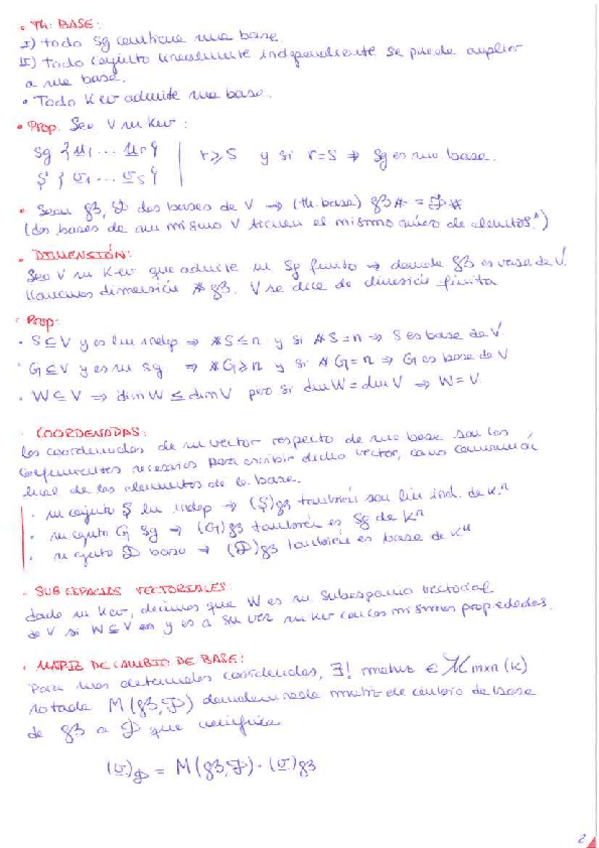 • Th. BASE:
I) todo Sg contiene una base.
II) todo conjunto linealmente independiente se puede ampliar
a una base.
• Todo Kev admite una base.
• Prop. Sea V un Kev:
Sg {u₁ ... uᵣ} | r ≥ S y si r=S ⇒ Sg es una base.
S {v₁ ... vₛ}
• Sean B, D dos bases de V → (th. base) B# = D#
(dos bases de un mismo V tienen el mismo núm de elementos)
• DIMENSIÓN:
Sea V un K-ev que admite un Sg finito → donde B es base de V.
Llamamos dimensión #B. V se dice de dimensión finita
• Prop.
• S⊆V y es lin indep ⇒ #S≤n y si #S=n ⇒ S es base de V
• G⊆V y es un sg ⇒ #G≥n y si #G=n ⇒ G es base de V
• W⊆V ⇒ dimW ≤ dimV pero si dimW=dimV ⇒ W=V
• COORDENADAS:
Las coordenadas de un vector respecto de una base son los
necesarios para escribir dicho vector, como combinación
lineal de los elementos de la base.
• un conjunto S lin indep → (S)B también son lin ind. de Kⁿ
• un conjunto G Sg → (G)B también es Sg de Kⁿ
• un conjunto D base → (D)B también es base de Kⁿ
• SUBESPACIOS VECTORIALES
dado un Kev, decimos que W es un subespacio vectorial
de V si W⊆V y es a su vez un kev con las mismas propiedades.
• MATRIZ DE CAMBIO DE BASE:
Para unas determinadas coordenadas, ∃! matriz ∈ M mxn (K)
notada M(B,D) denominada matriz de cambio de base
de B a D que verifica
(v)D = M(B,D)·(v)B
2